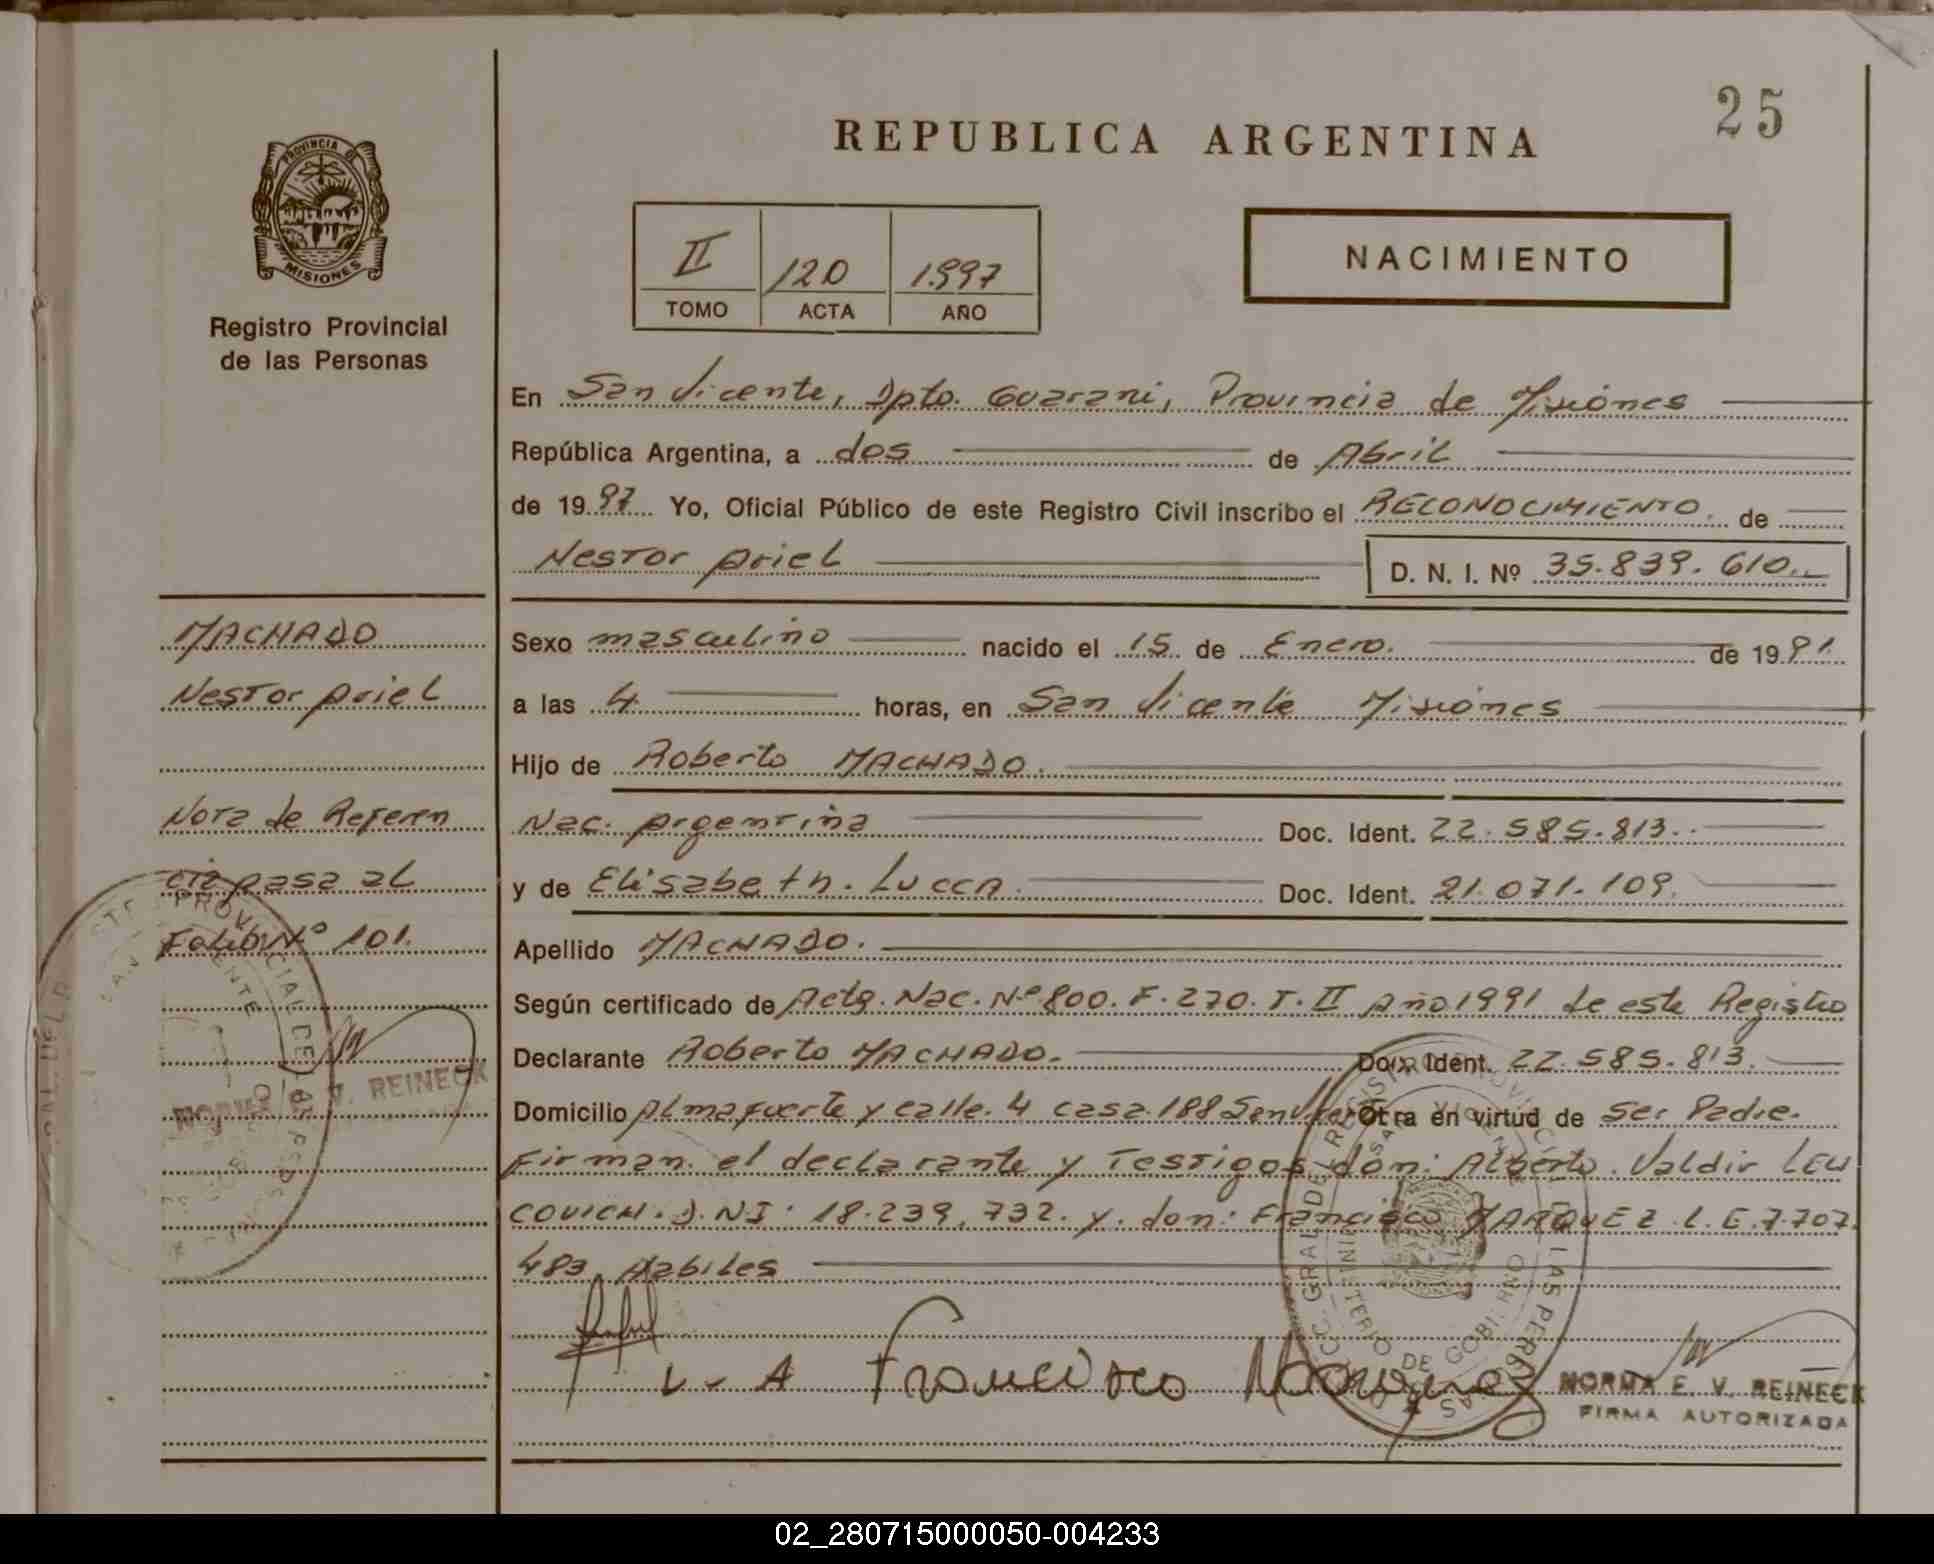 25
REPUBLICA ARGENTINA
PROVINCIA DE
MISIONES
Registro Provincial
de las Personas
II 120 1.997
TOMO ACTA AÑO
NACIMIENTO
En San Vicente, Dpto. Guarani, Provincia de Misiones
República Argentina, a dos de Abril
de 1997 Yo, Oficial Público de este Registro Civil inscribo el RECONOCIMIENTO. de
Nestor Ariel D. N. I. Nº 35.839.610.
Sexo masculino nacido el 15 de Enero. de 1991.
a las 4 horas, en San Vicente Misiones
Hijo de Roberto MACHADO.
Nac. Argentina Doc. Ident. 22.585.813.
y de Elisabeth. Lucca. Doc. Ident. 21.071.109.
Apellido MACHADO.
Según certificado de Acta. Nac. Nº 800. F. 270. T. II Año 1991 de este Registro
Declarante Roberto MACHADO. Doc. Ident. 22.585.813.
Domicilio Almafuerte y calle. 4 casa. 188 San Vicente Obra en virtud de ser Padre.
Firman. el declarante y Testigos don: Alberto. Valdir LEW
COVICH. D.NI: 18.239.732. y. don: Francisco MARQUEZ. L.E. 7.707.
483 Habiles
L-A Francisco Marquez
NORMA E. V. REINECK
FIRMA AUTORIZADA
MACHADO
Nestor Ariel
Nota de Referen
cia pasa al
Folio Nº 101.
NORMA E. V. REINECK
02_280715000050-004233